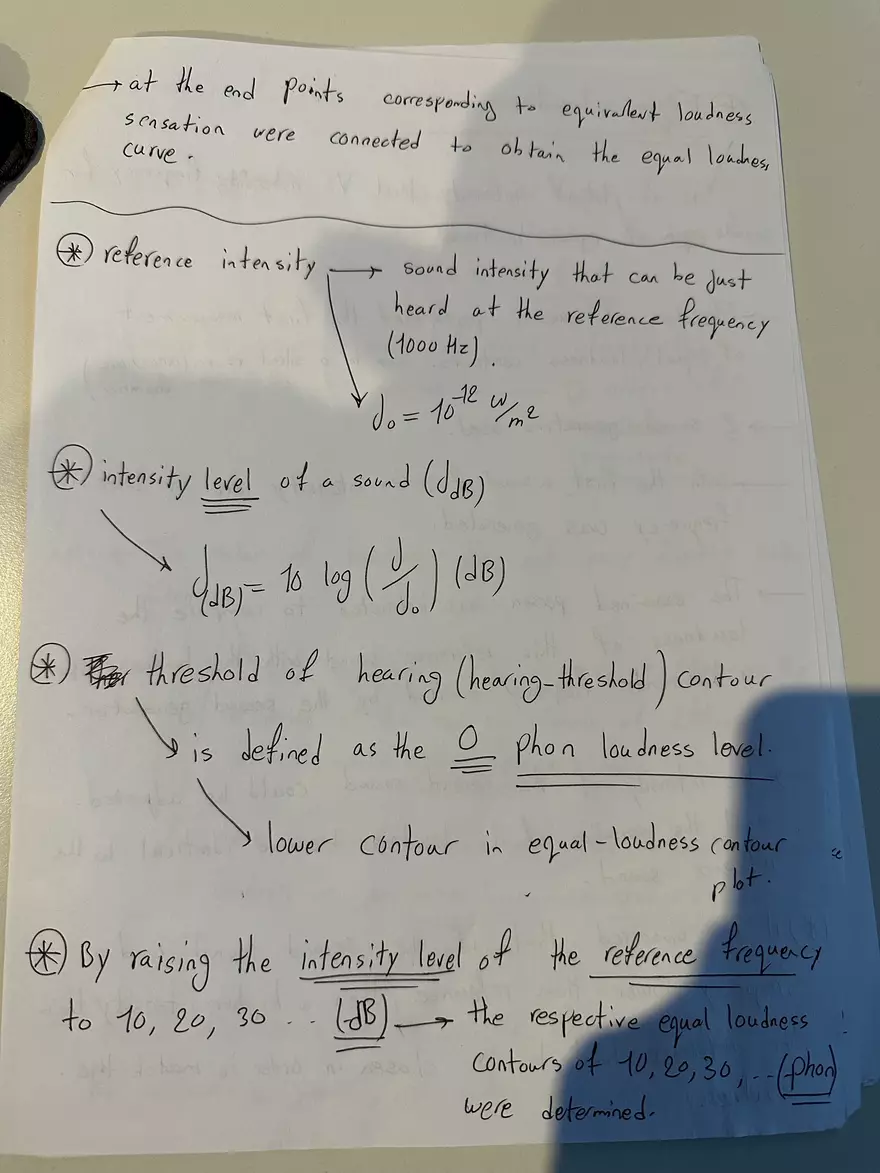 → at the end points corresponding to equivalent loudness
sensation were connected to obtain the equal loudness
curve.
⊛ reference intensity → sound intensity that can be just
heard at the reference frequency
(1000 Hz).
J₀ = 10⁻¹² W/m²
⊛ intensity level of a sound (J dB)
J(dB) = 10 log (J/J₀) (dB)
⊛ threshold of hearing (hearing-threshold) contour
is defined as the 0 phon loudness level.
lower contour in equal-loudness contour
plot.
⊛ By raising the intensity level of the reference frequency
to 10, 20, 30 ... (dB) → the respective equal loudness
contours of 10, 20, 30, ... (phon)
were determined.